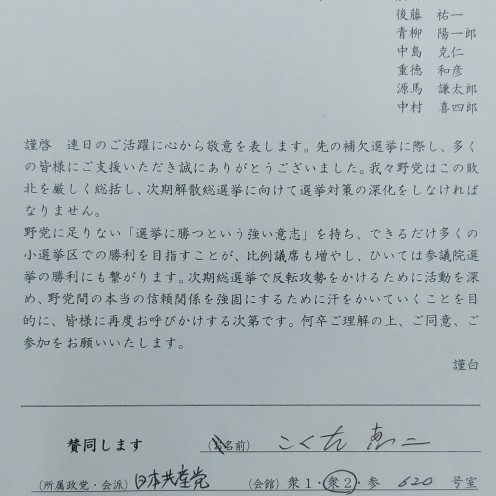 後藤 祐一
青柳 陽一郎
中島 克仁
重徳 和彦
源馬 謙太郎
中村 喜四郎
謹啓 連日のご活躍に心から敬意を表します。先の補欠選挙に際し、多く
の皆様にご支援いただき誠にありがとうございました。我々野党はこの敗
北を厳しく総括し、次期解散総選挙に向けて選挙対策の深化をしなければ
なりません。
野党に足りない「選挙に勝つという強い意志」を持ち、できるだけ多くの
小選挙区での勝利を目指すことが、比例議席も増やし、ひいては参議院選
挙の勝利にも繋がります。次期総選挙で反転攻勢をかけるために活動を深
め、野党間の本当の信頼関係を強固にするために汗をかいていくことを目
的に、皆様に再度お呼びかけする次第です。何卒ご理解の上、ご同意、ご
参加をお願いいたします。
謹白
賛同します (お名前) こくた 恵二
(所属政党・会派) 日本共産党 (会館) 衆1・衆2・参 620 号室